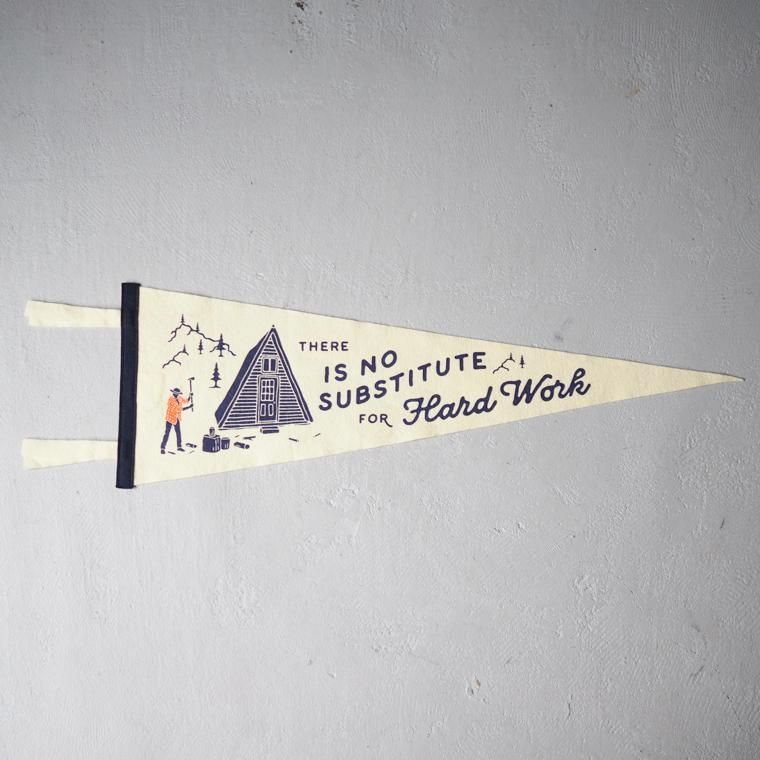 THERE
IS NO
SUBSTITUTE
FOR Hard Work